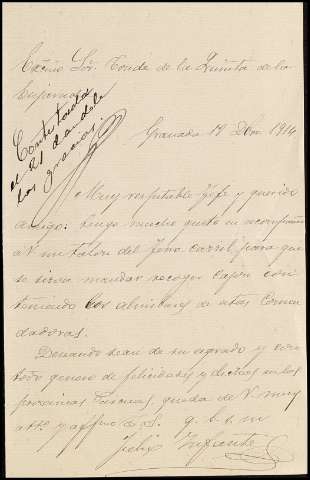 Excmo Sor. Conde de la Quinta de la
Enjarada
Contestada
el 21 dandole
las gracias
Granada 19 Dbre 1914
Muy respetable Jefe y querido
amigo: tengo mucho gusto en acompañar
a V. un talon del ferro carril para que
se sirva mandar recoger cajon con-
teniendo los almibares de estas Comen-
dadoras.
Deseando sean de su agrado y con
todo genero de felicidades y dichas en las
proximas Pascuas, queda de V. muy
atto y affmo s. s. q. b. s. m
Felix Infante